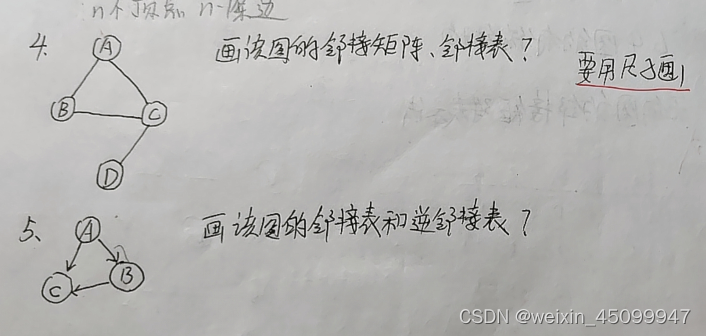 n个顶点 n-条边
4.
画该图的邻接矩阵、邻接表？
要用尺子画！
A
B
C
D
5.
画该图的邻接表和逆邻接表？
A
C
B
CSDN @weixin_45099947